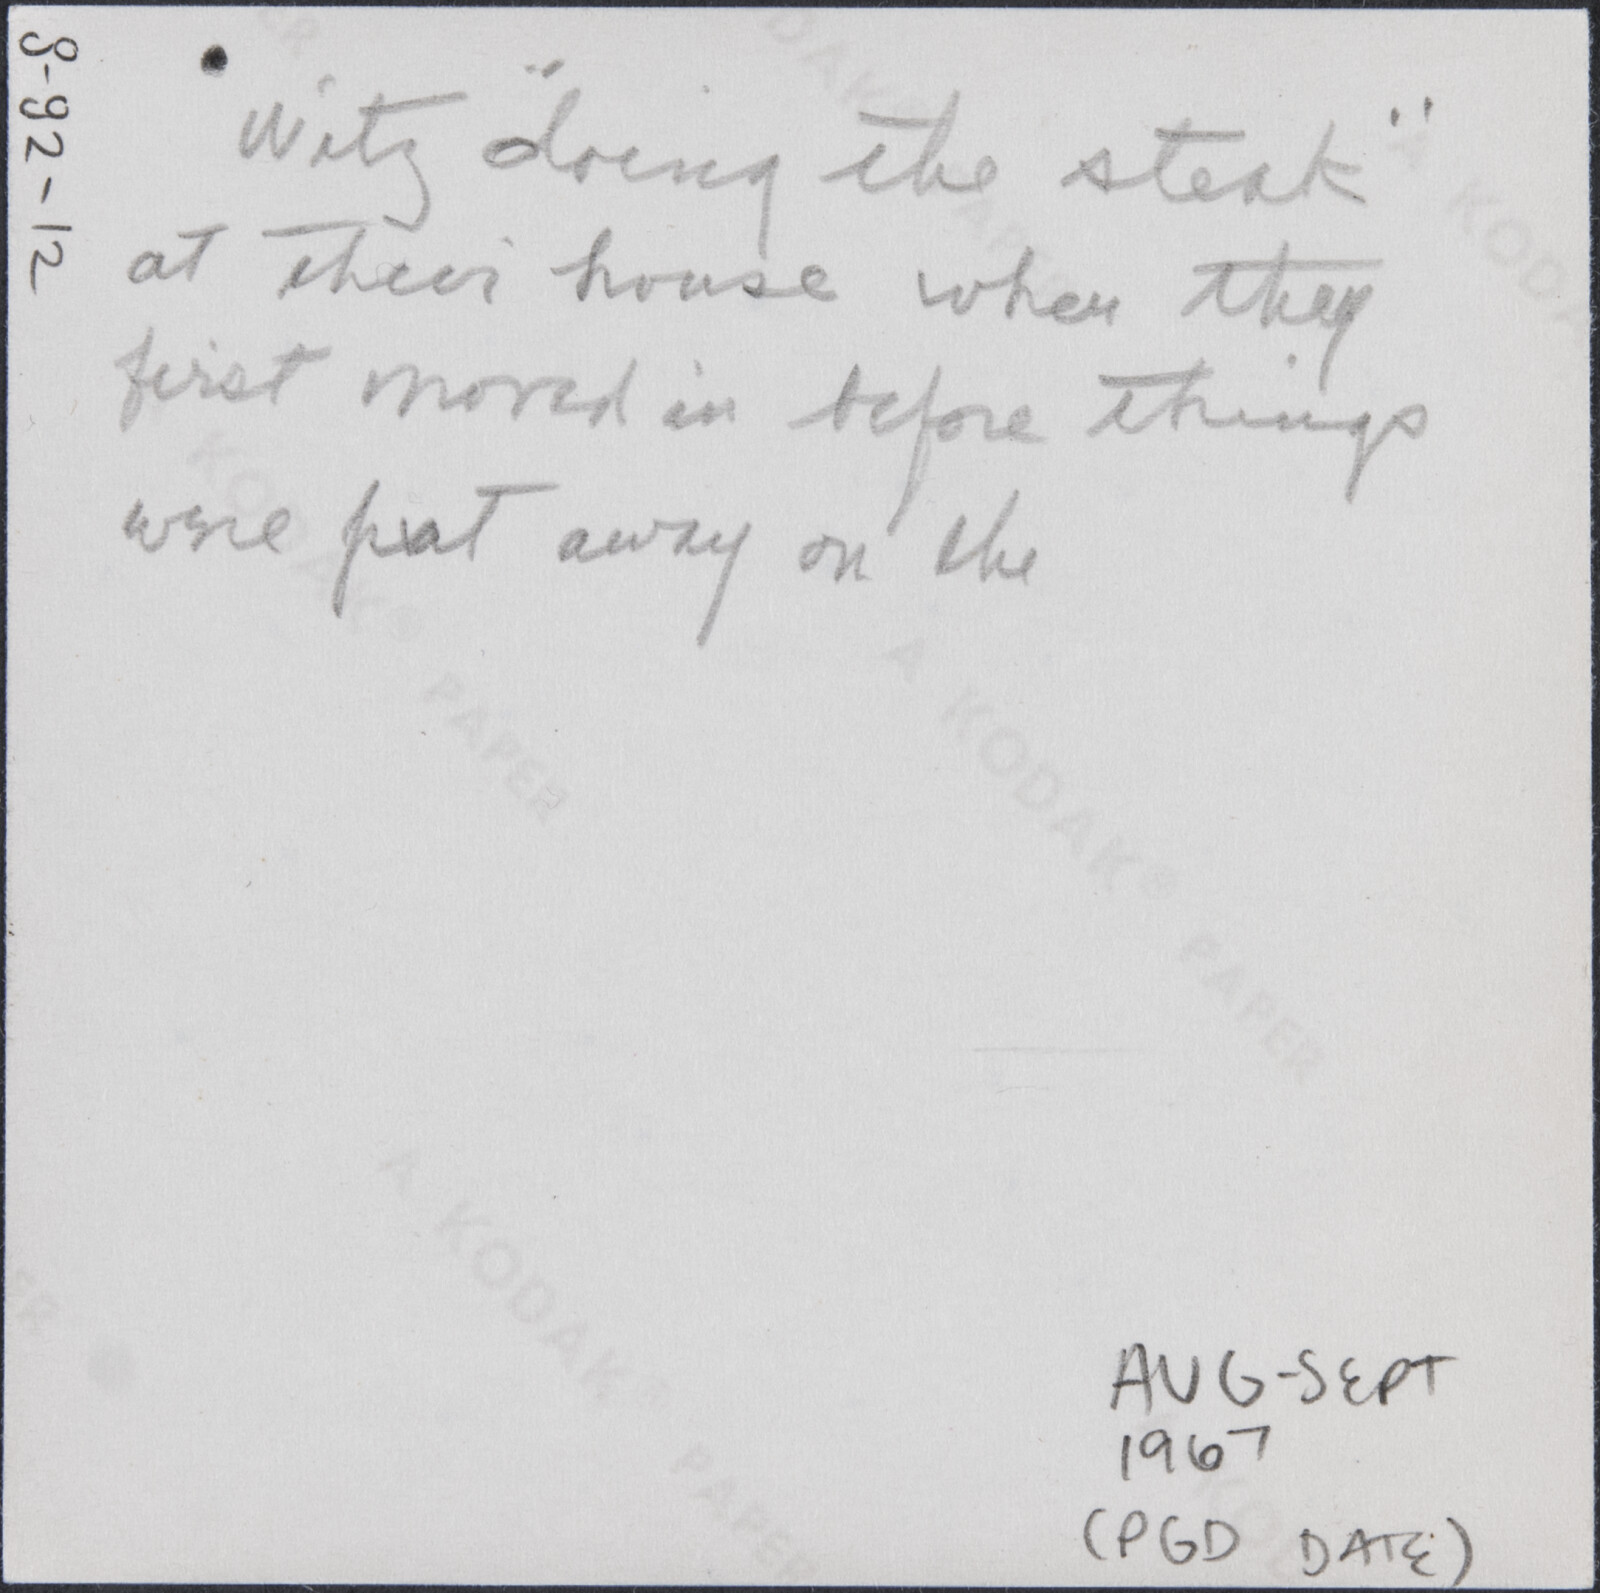 8-92-12
Witz "doing the steak"
at their house when they
first moved in before things
were put away on the
A KODAK® PAPER
AUG-SEPT
1967
(PGD DATE)